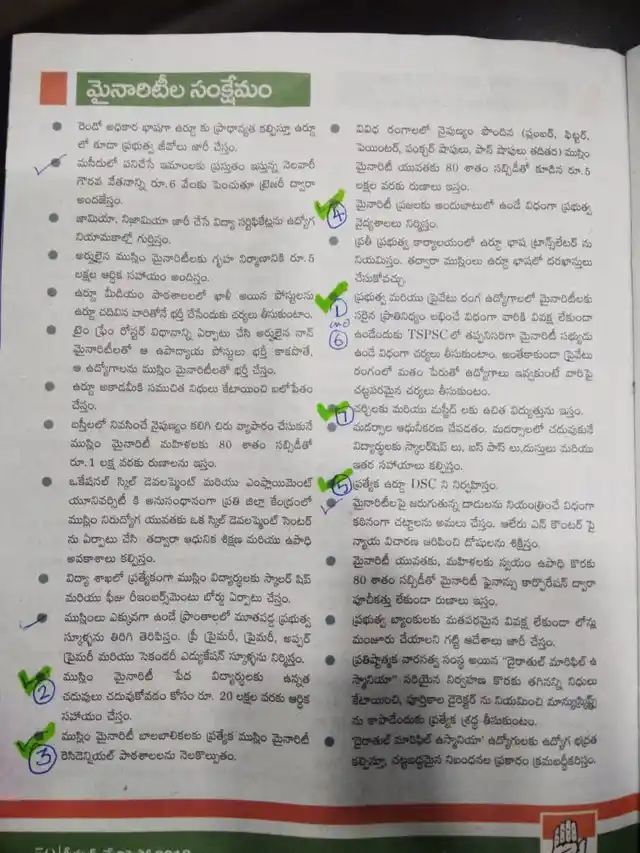 మైనారిటీల సంక్షేమం
రెండో అధికార భాషగా ఉర్దూ కు ప్రాధాన్యత కల్పిస్తూ ఉర్దూ
లో కూడా ప్రభుత్వ జీవోలు జారీ చేస్తం.
మసీదులో పనిచేసే ఇమాంలకు ప్రస్తుతం ఇస్తున్న నెలవారీ
గౌరవ వేతనాన్ని రూ.6 వేలకు పెంచుతూ ట్రెజరీ ద్వారా
అందజేస్తం.
జామియా, నిజామియా జారీ చేసే విద్యా సర్టిఫికేట్లను ఉద్యోగ
నియామకాల్లో గుర్తిస్తం.
అర్హులైన ముస్లిం మైనారిటీలకు గృహ నిర్మాణికి రూ.5
లక్షల ఆర్థిక సహాయం అందిస్తం.
ఉర్దూ మీడియం పాఠశాలలలో ఖాళీ అయిన పోస్టులను
ఉర్దూ చదివిన వారితోనే భర్తీ చేసేందుకు చర్యలు తీసుకుంటాం.
టైం ఫ్రేం రోస్టర్ విధానాన్ని ఏర్పాటు చేసి అర్హులైన నాన్
మైనారిటీలతో ఆ ఉపాధ్యాయ పోస్టులు భర్తీ కాకపోతే,
ఆ ఉద్యోగాలను ముస్లిం మైనారిటీలతో భర్తీ చేస్తం.
ఉర్దూ అకాడమీకి సముచిత నిధులు కేటాయించి బలోపేతం
చేస్తం.
బస్తీలలో నివసించే నైపుణ్యం కలిగి చిరు వ్యాపారం చేసుకునే
ముస్లిం మైనారిటీ మహిళలకు 80 శాతం సబ్సిడీతో
రూ.1 లక్ష వరకు రుణాలను ఇస్తం.
ఒకేషనల్ స్కిల్ డెవలప్మెంట్ మరియు ఎంప్లాయిమెంట్
యూనివర్సిటీ కి అనుసంధానంగా ప్రతి జిల్లా కేంద్రంలో
ముస్లిం నిరుద్యోగ యువతకు ఒక స్కిల్ డెవలప్మెంట్ సెంటర్
ను ఏర్పాటు చేసి తద్వారా ఆధునిక శిక్షణ మరియు ఉపాధి
అవకాశాలు కల్పిస్తం.
విద్యా శాఖలో ప్రత్యేకంగా ముస్లిం విద్యార్థులకు స్కాలర్ షిప్
మరియు ఫీజు రీఇంబర్స్‌మెంటు బోర్డు ఏర్పాటు చేస్తం.
ముస్లింలు ఎక్కువగా ఉండే ప్రాంతాల్లో మూతపడ్డ ప్రభుత్వ
స్కూళ్ళను తిరిగి తెరిపిస్తం. ప్రీ ప్రైమరీ, ప్రైమరీ, అప్పర్
ప్రైమరీ మరియు సెకండరీ ఎడ్యుకేషన్ స్కూళ్ళను నిర్మిస్తం.
ముస్లిం మైనారిటీ పేద విద్యార్థులకు ఉన్నత
చదువులు చదువుకోవడం కోసం రూ. 20 లక్షల వరకు ఆర్థిక
సహాయం చేస్తం.
2
ముస్లిం మైనారిటీ బాలబాలికలకు ప్రత్యేక ముస్లిం మైనారిటీ
రెసిడెన్షియల్ పాఠశాలలను నెలకొల్పుతం.
3
వివిధ రంగాలలో నైపుణ్యం పొందిన (ప్లంబర్, ఫిట్టర్,
పెయింటర్, పంక్చర్ షాపులు, పాన్ షాపులు తదితర) ముస్లిం
మైనారిటీ యువతకు 80 శాతం సబ్సిడీతో కూడిన రూ.5
లక్షల వరకు రుణాలు ఇస్తం.
మైనారిటీ ప్రజలకు అందుబాటులో ఉండే విధంగా ప్రభుత్వ
4
వైద్యశాలలు నిర్మిస్తం.
ప్రతీ ప్రభుత్వ కార్యాలయంలో ఉర్దూ భాష ట్రాన్స్‌లేటర్ ను
నియమిస్తం. తద్వారా ముస్లింలు ఉర్దూ భాషలో దరఖాస్తులు
చేసుకోవచ్చు.
ప్రభుత్వ మరియు ప్రైవేటు రంగ ఉద్యోగాలలో మైనారిటీలకు
1
సరైన ప్రాతినిధ్యం లభించే విధంగా వారికి వివక్ష లేకుండా
6
ఉండేందుకు TSPSCలో తప్పనిసరిగా మైనారిటీ సభ్యుడు
ఉండే విధంగా చర్యలు తీసుకుంటాం. అంతేకాకుండా ప్రైవేటు
రంగంలో మతం పేరుతో ఉద్యోగాలు ఇవ్వకుంటే వారిపై
చట్టపరమైన చర్యలు తీసుకుంటాం.
7
చర్చిలకు మరియు మస్జీద్ లకు ఉచిత విద్యుత్తును ఇస్తం.
మదర్సాల ఆధునీకరణ చేపడతం. మదర్సాలలో చదువుకునే
విద్యార్థులకు స్కాలర్‌షిప్ లు, బస్ పాస్ లు,దుస్తులు మరియు
ఇతర సహాయాలు కల్పిస్తం.
5
ప్రత్యేక ఉర్దూ DSC ని నిర్వహిస్తం.
మైనారిటీలపై జరుగుతున్న దాడులను నియంత్రించే విధంగా
కఠినంగా చట్టాలను అమలు చేస్తం. ఆలేరు ఎన్ కౌంటర్ పై
న్యాయ విచారణ జరిపించి దోషులను శిక్షిస్తం.
మైనారిటీ యువతకు, మహిళలకు స్వయం ఉపాధి కొరకు
80 శాతం సబ్సిడీతో మైనారిటీ ఫైనాన్సు కార్పొరేషన్ ద్వారా
పూచీకత్తు లేకుండా రుణాలు ఇస్తం.
ప్రభుత్వ బ్యాంకులకు మతపరమైన వివక్ష లేకుండా లోన్లు
మంజూరు చేయాలని గట్టి ఆదేశాలు జారీ చేస్తం.
ప్రతిష్ఠాత్మక వారసత్వ సంస్థ అయిన "దైరాతుల్ మారిఫిల్ ఉ
స్మానియా" సరియైన నిర్వహణ కొరకు తగినన్ని నిధులు
కేటాయించి, పూర్తికాల డైరెక్టర్ ను నియమించి మాన్యుస్క్రిప్ట్స్
ను కాపాడేందుకు ప్రత్యేక శ్రద్ధ తీసుకుంటాం.
'దైరాతుల్ మారిఫిల్ ఉస్మానియా' ఉద్యోగులకు ఉద్యోగ భద్రత
కల్పిస్తూ, చట్టబద్ధమైన నిబంధనల ప్రకారం క్రమబద్ధీకరిస్తం.